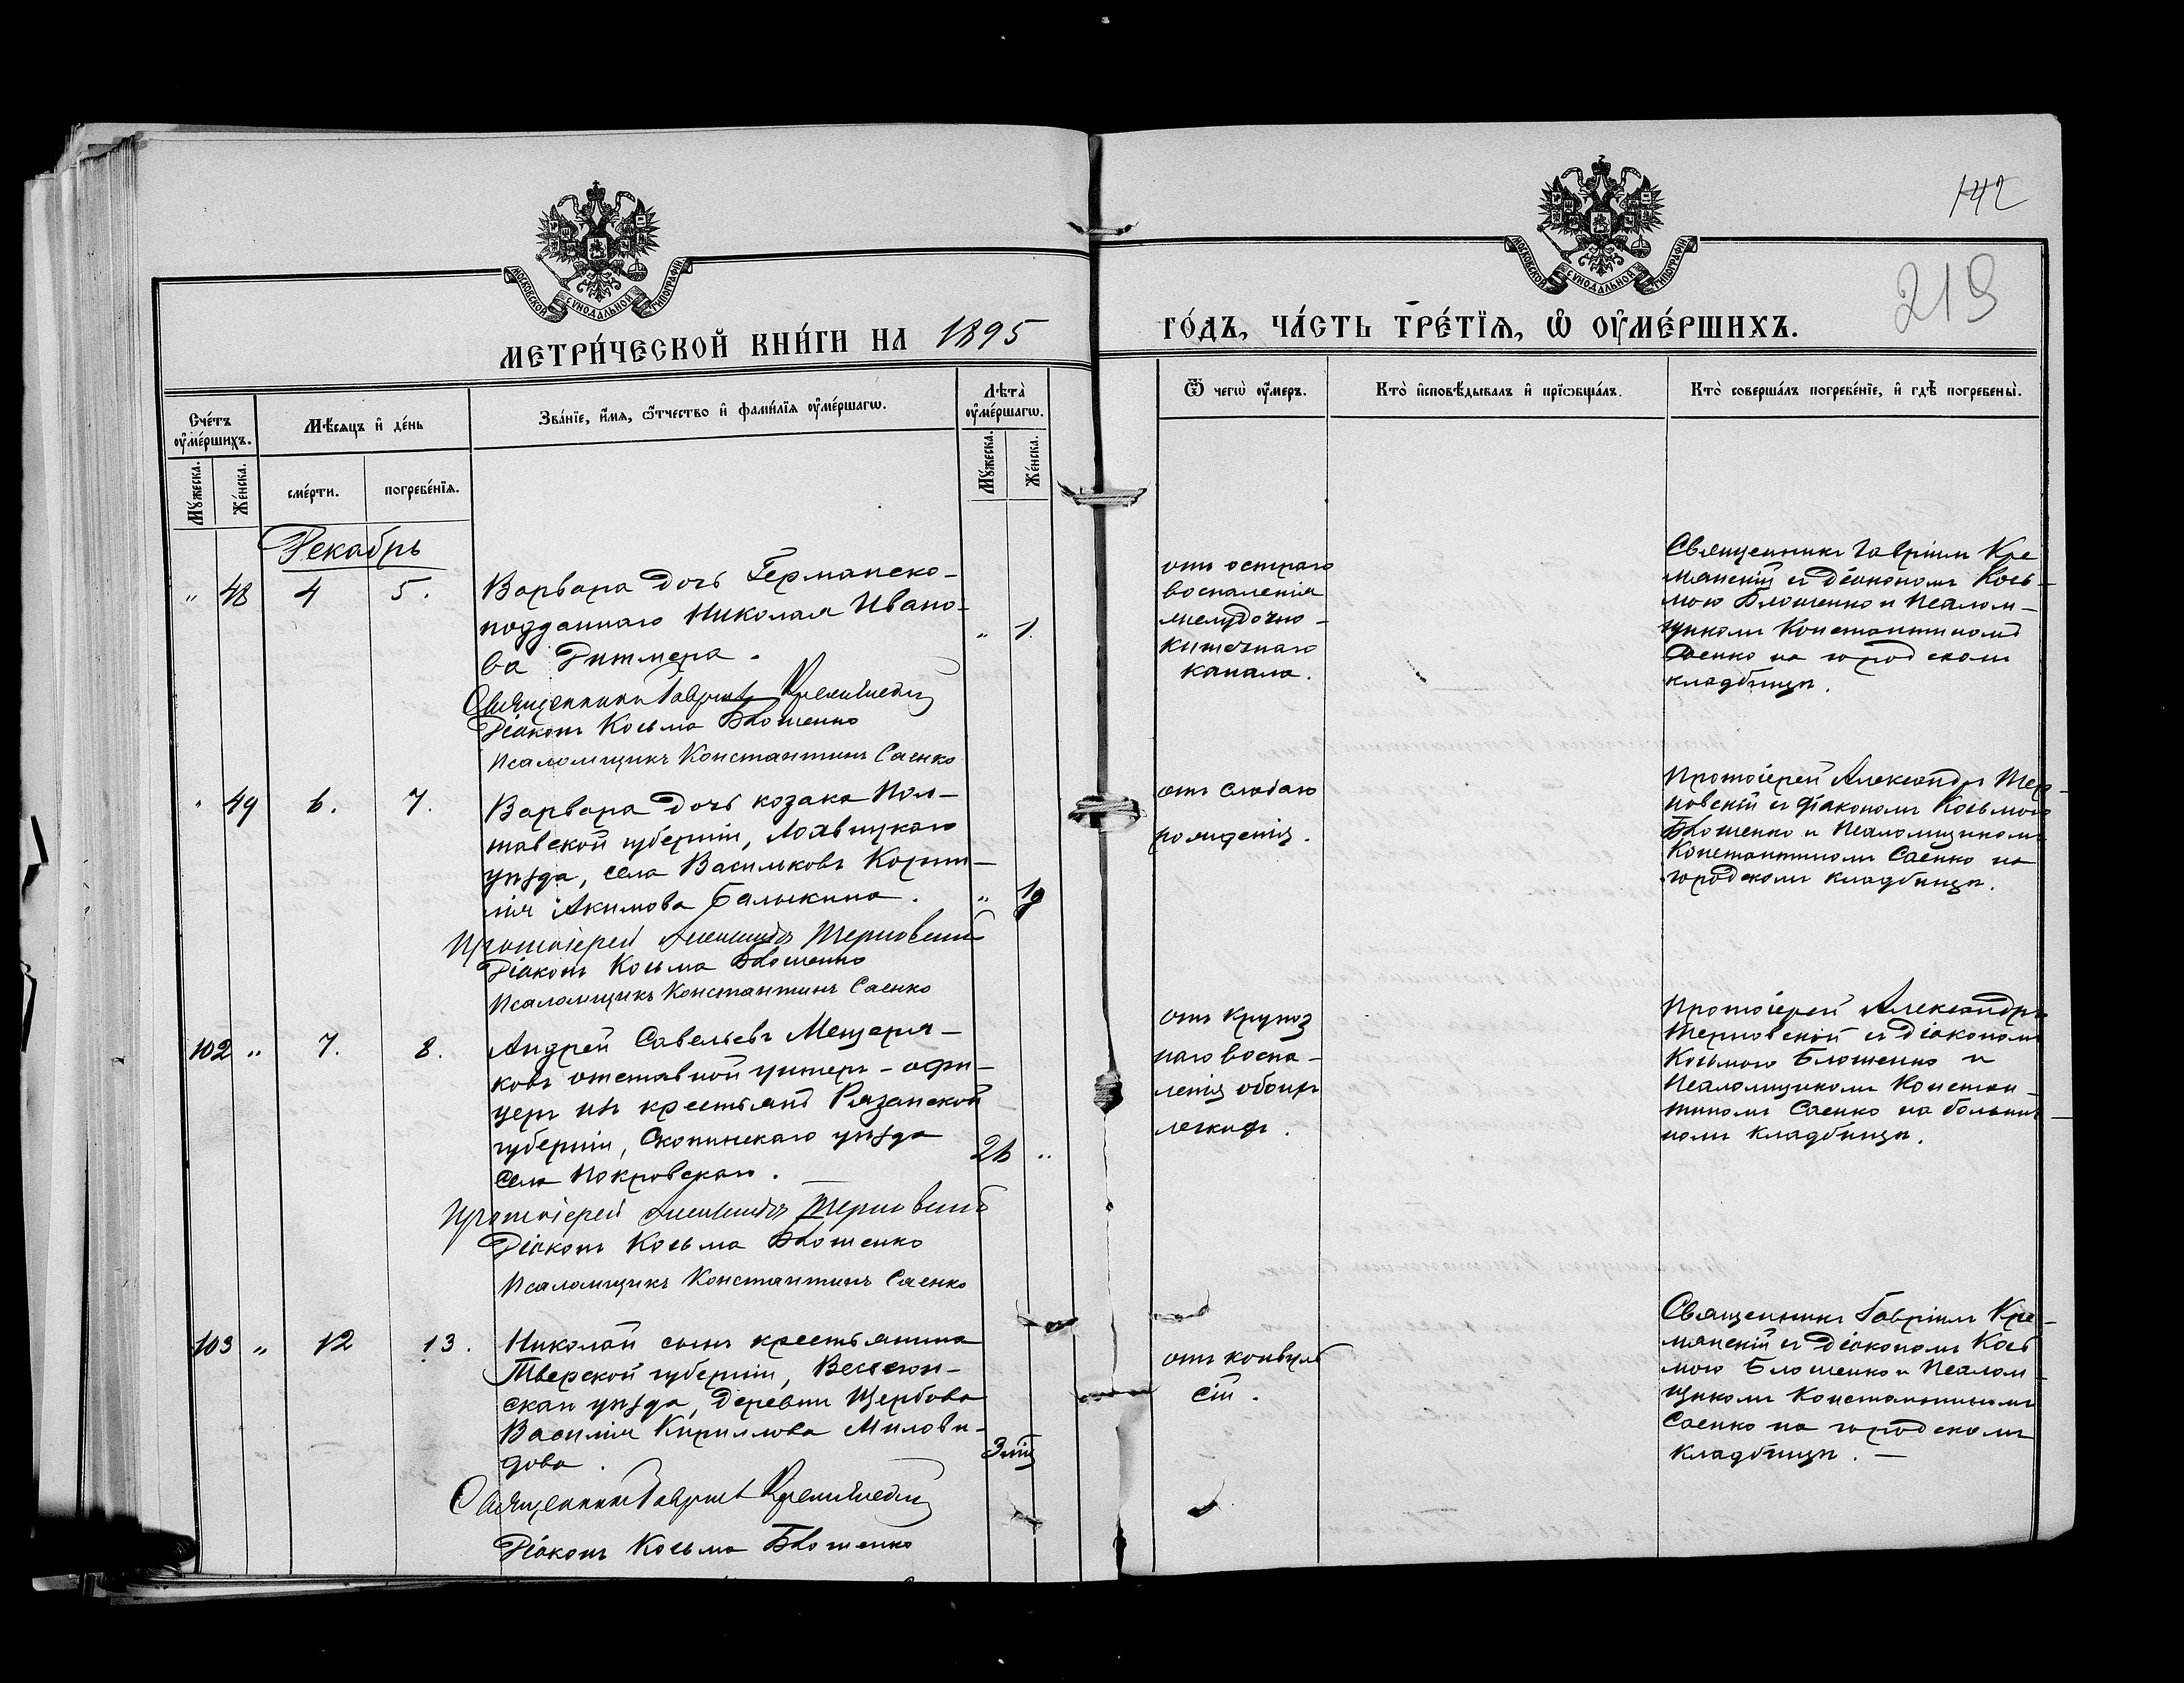 142
219
МОСКОВСКОЙ СѴНОДАЛЬНОЙ ТИПОГРАФІИ
МОСКОВСКОЙ СѴНОДАЛЬНОЙ ТИПОГРАФІИ
МЕТРИ́ЧЕСКОЙ КНИ́ГИ НА 1895
ГО́ДЪ, ЧА́СТЬ ТРЕ́ТЇѦ, Ѡ҆ ОУ҆МЕ́РШИХЪ.
Сче́тъ оу҆ме́ршихъ.
Мѣ́сяцъ и҆ де́нь
Зва́нїе, и҆́мя, ѻ҆́тчество и҆ фами́лїя оу҆ме́ршагѡ.
Лѣта̀ оу҆ме́ршагѡ.
Ѿ чегѡ̀ оу҆́меръ.
Кто̀ и҆сповѣ́дывалъ и҆ прїѡбща́лъ.
Кто̀ соверша́лъ погребе́нїе, и҆ гдѣ̀ погребены̀.
Мꙋ́жеска.
Же́нска.
сме́рти.
погребе́нїя.
Мꙋ́жеска.
Же́нска.
Декабрь
" 48 4 5.
Варвара дочь Германско-
подданнаго Николая Ивано-
ва Дитмера.
" 1.
Священникъ Гавріилъ Кремянскій
Діаконъ Косьма Блошенко
Псаломщикъ Константинъ Саенко
отъ остраго
воспаленія
желудочно-
кишечнаго
канала.
Священникъ Гавріилъ Кре
мянскій съ діакономъ Кось-
мою Блошенко и Псалом-
щикомъ Константиномъ
Саенко на городскомъ
кладбищѣ.
" 49 6. 7.
Варвара дочь козака Пол-
тавской губерніи, Лохвицкаго
уѣзда, села Васильковъ Корни-
лія Акимова Балыкина.
" 19
Протоіерей Александръ Терновскій
Діаконъ Косьма Блошенко
Псаломщикъ Константинъ Саенко
отъ слабаго
рожденія.
Протоіерей Александръ Тер-
новскій съ діакономъ Косьмою
Блошенко и Псаломщикомъ
Константиномъ Саенко на
городскомъ кладбищѣ.
102 " 7. 8.
Андрей Савельевъ Мещеря-
ковъ отставной унтеръ-офи-
церъ изъ крестьянъ Рязанской
губерніи, Скопинскаго уѣзда
села Покровскаго.
26 "
Протоіерей Александръ Терновскій
Діаконъ Косьма Блошенко
Псаломщикъ Константинъ Саенко
отъ крупоз
наго воспа-
ленія обоихъ
легкихъ.
Протоіерей Александръ
Терновскій съ діакономъ
Косьмою Блошенко и
Псаломщикомъ Констан-
тиномъ Саенко на больнич-
номъ кладбищѣ.
103 " 12 13.
Николай сынъ крестьянина
Тверской губерніи, Весьегон-
скаго уѣзда, деревни Щербова
Василія Кириллова Милови-
дова.
Священникъ Гавріилъ Кремянскій
Діаконъ Косьма Блошенко
отъ конвуль
сій.
Священникъ Гавріилъ Кре-
мянскій съ діакономъ Кось
мою Блошенко и Псалом
щикомъ Константиномъ
Саенко на городскомъ
кладбищѣ. —